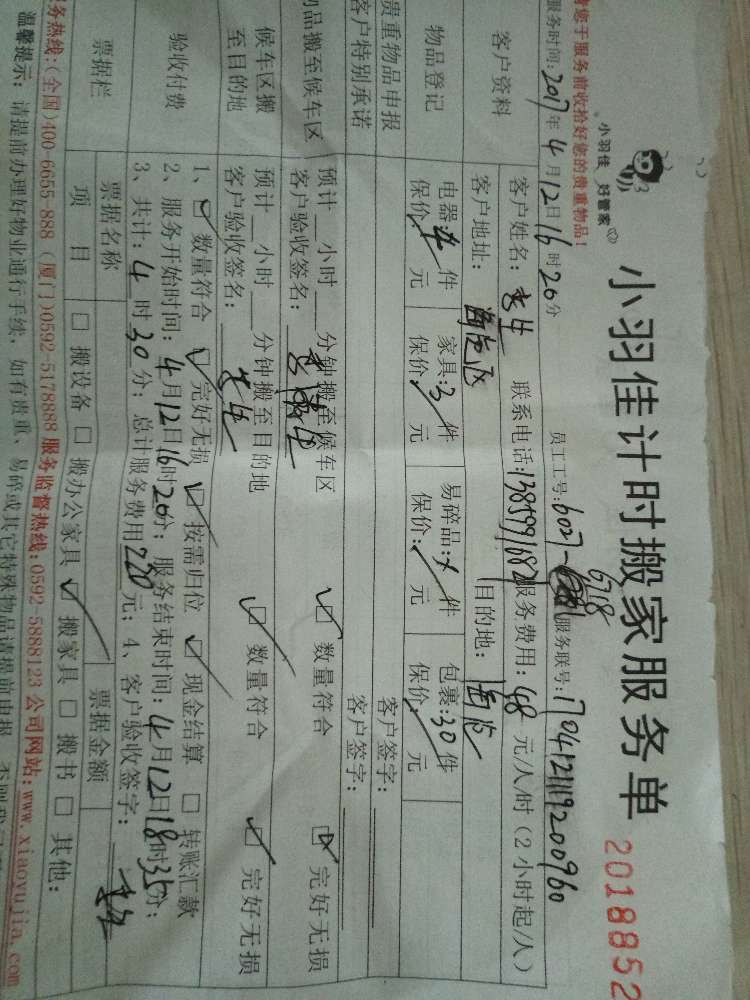 小羽佳 好管家
小羽佳计时搬家服务单
2018852
请您于服务前收拾好您的贵重物品!
服务时间: 2017年4月12日16时20分 员工工号: 6027- 6718 服务联号: 170412111920096０
客户资料 客户姓名: 李生 联系电话: 服务费用: 48元/人/时(2小时起/人)
客户地址: 海沧区 目的地: 海沧
物品登记 电器: 件 家具:3件 易碎品: 件 包裹:30件
保价: 元 保价: 元 保价: 元 保价: 元
贵重物品申报 客户签字:
客户特别承诺 客户签字:
物品搬至候车区 预计 小时 分钟搬至候车区 ☑数量符合 ☑完好无损
客户验收签名:
候车区搬至目的地 预计 小时 分钟搬至目的地 ☑数量符合 ☑完好无损
客户验收签名: 李生
验收付费 1、☑数量符合 ☑完好无损 ☑按需归位 ☑现金结算 □转账汇款
2、服务开始时间: 4月12日16时20分; 服务结束时间: 4月12日18时35分;
3、共计: 4时30分; 总计服务费用220元; 4、客户验收签字: 李生
票据栏 票据名称 票据金额
项目 □搬设备 □搬办公家具 ☑搬家具 □搬书 □其他:
服务热线:(全国)400-6655-888 (厦门)0592-5178888 服务监督热线:0592-5888123 公司网站:www.xiaoyujia.com
温馨提示: 请提前办理好物业通行手续, 如有贵重、易碎或其它特殊物品请提前申报,